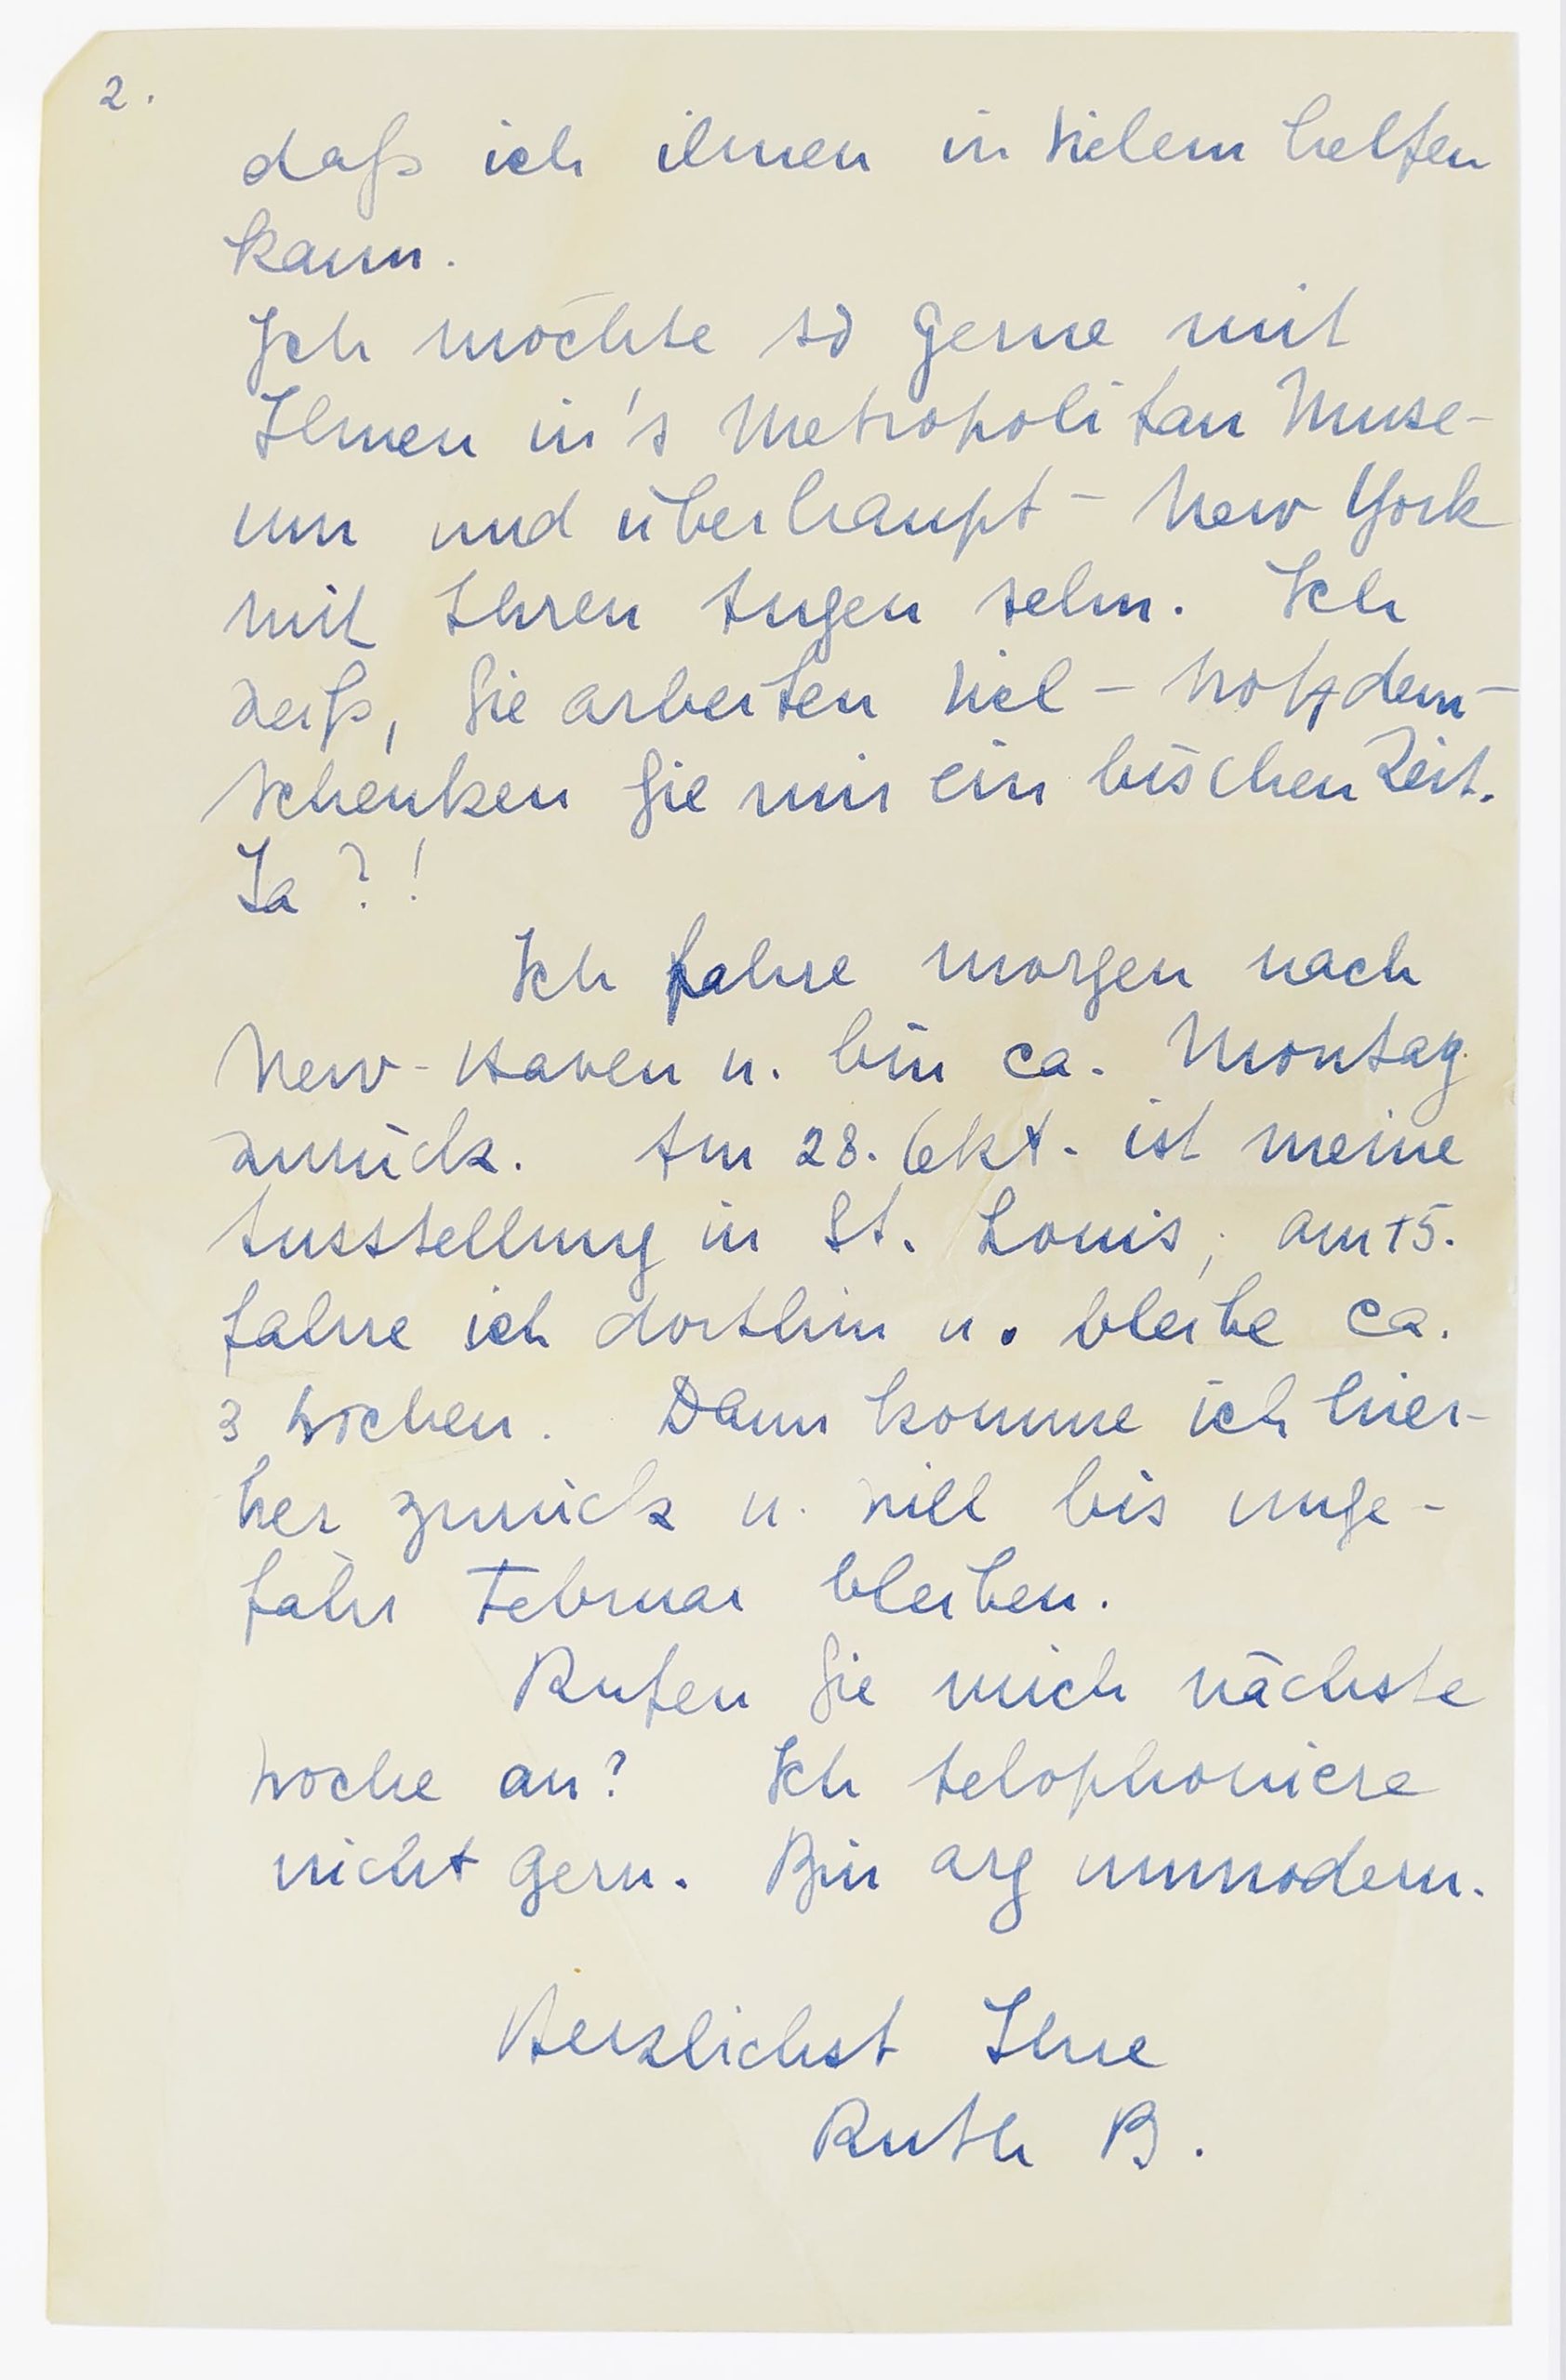 2.
daß ich ihnen in Vielem helfen
kann.
Ich möchte so gerne mit
Ihnen in's Metropolitan Muse-
um und überhaupt – New York
mit Ihren Augen sehn. Ich
weiß, Sie arbeiten viel – trotzdem –
schenken Sie mir ein bischen Zeit.
Ja?!
Ich fahre morgen nach
New-Haven u. bin ca. Montag
zurück. Am 28. Okt. ist meine
Ausstellung in St. Louis, am 15.
fahre ich dorthin u. bleibe ca.
3 Wochen. Dann komme ich hier-
her zurück u. will bis unge-
fähr Februar bleiben.
Rufen Sie mich nächste
Woche an? Ich telephoniere
nicht gern. Bin arg unmodern.
Herzlichst Ihre
Ruth B.